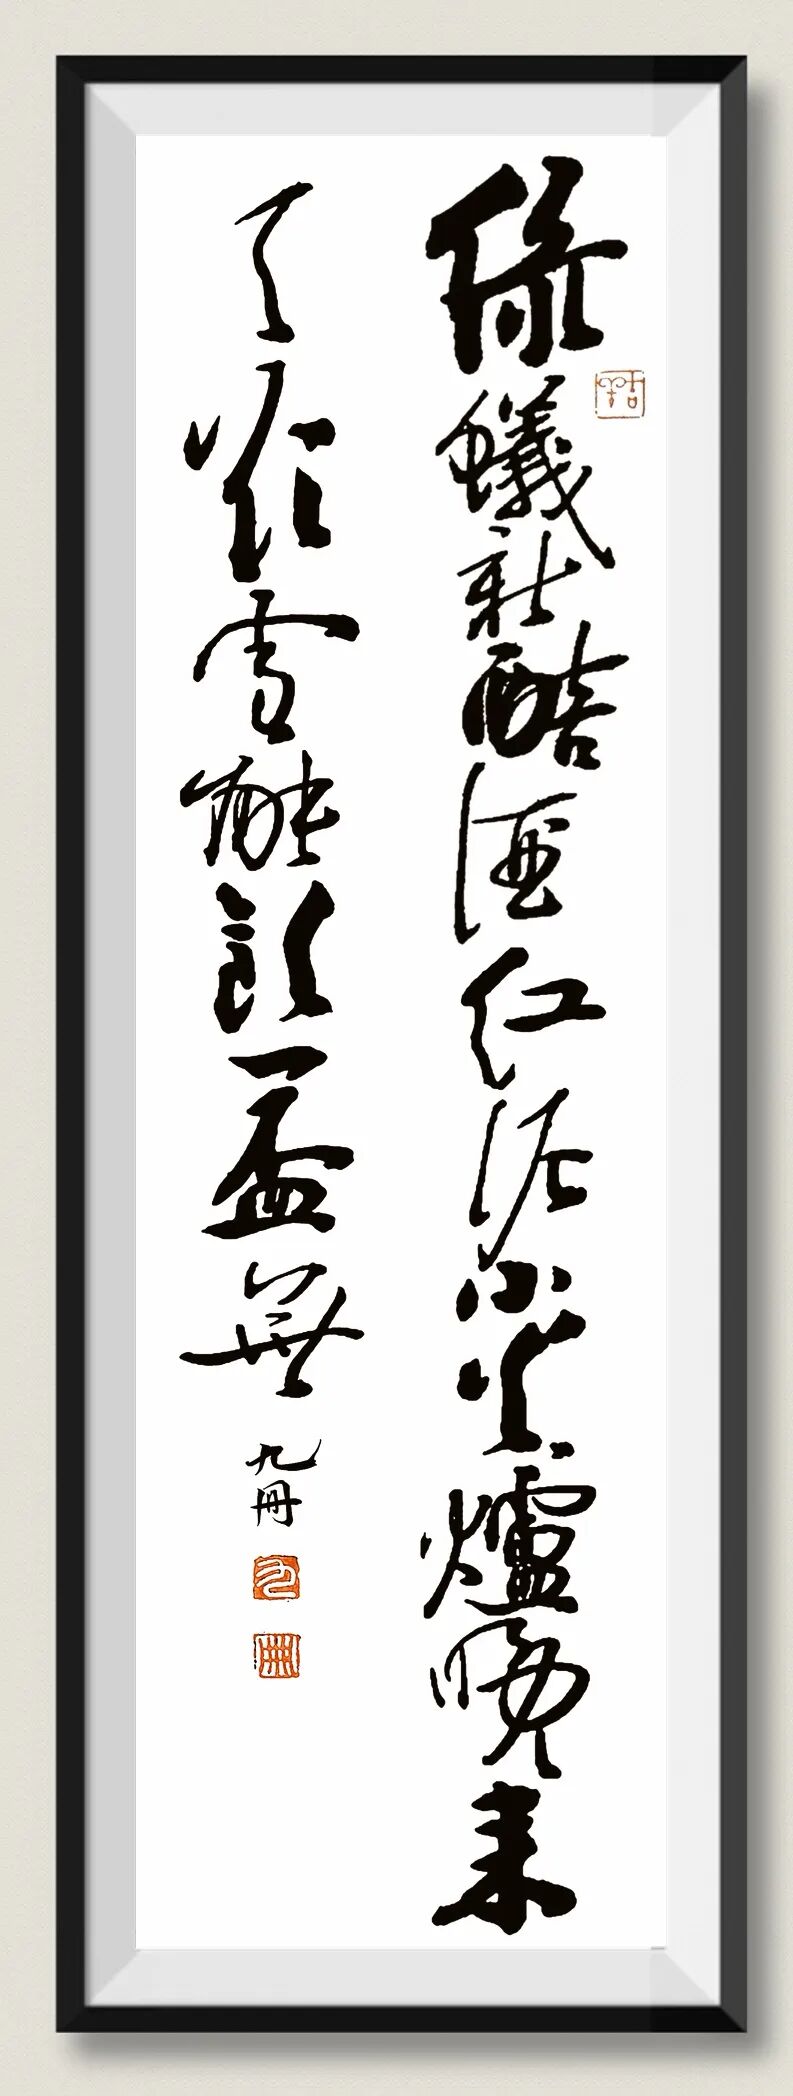 綠蟻新醅酒紅泥小火爐晚來
天欲雪能飲一盃無
九冊